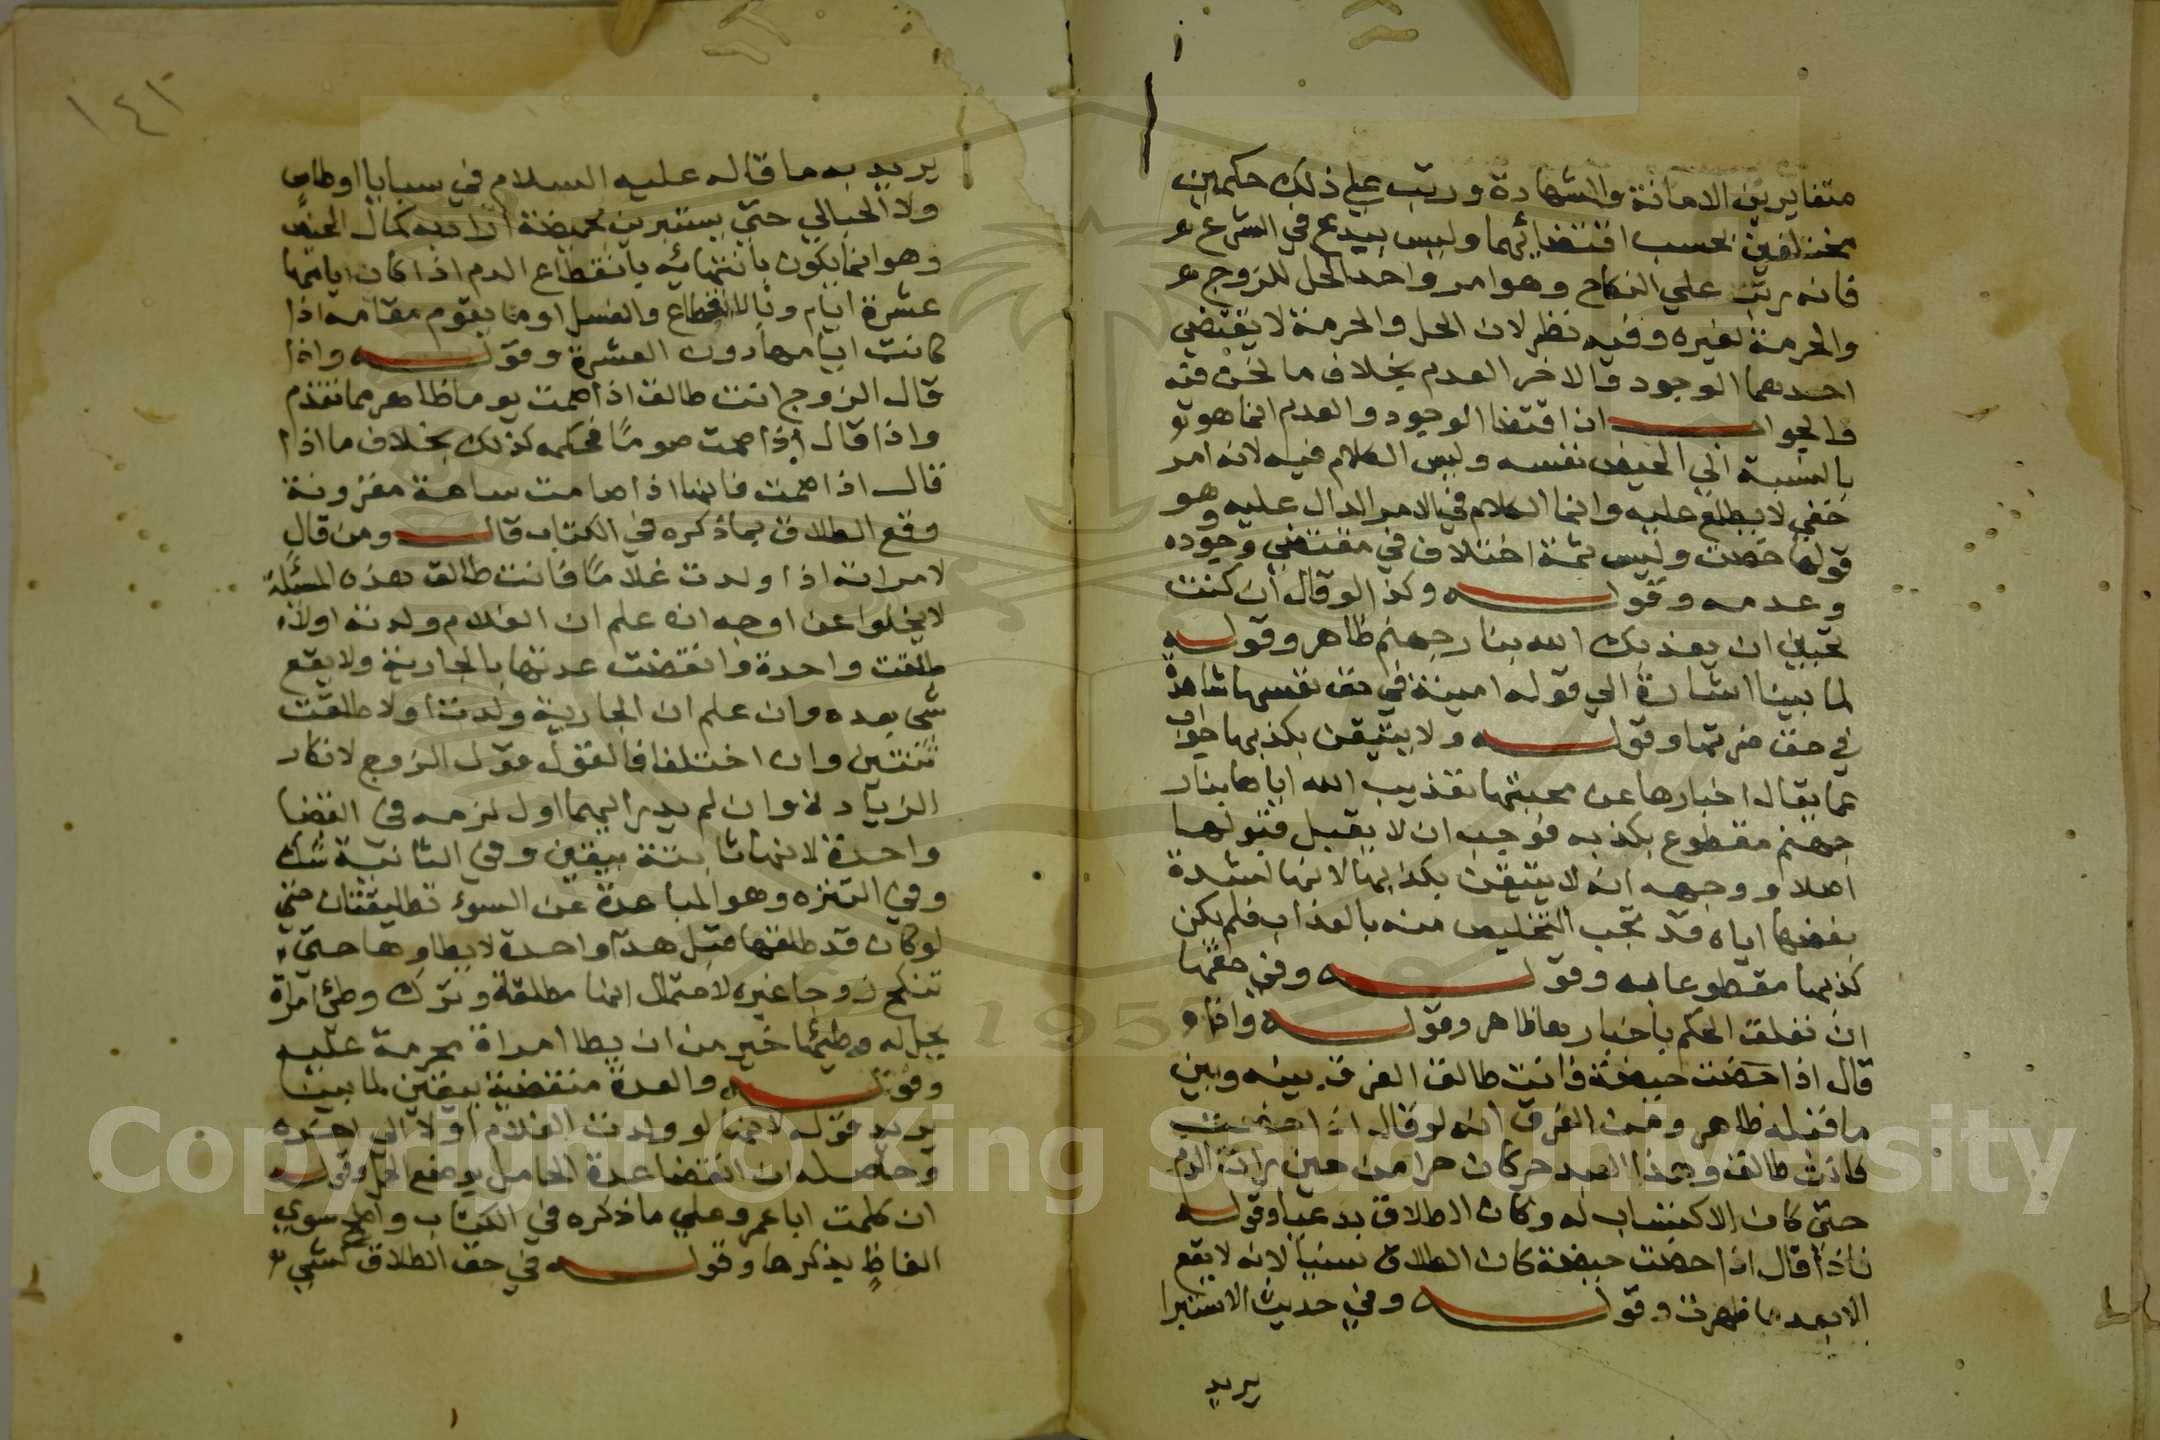 متغايرين الامانة والشهادة ورتب على ذلك حكمين
مختلفين بحسب اقتضائهما وليس ببدع في الشرع
فانه رتب علي النكاح وهو امر واحد الحل للزوج
والحرمة لغيره وفيه نظر لان الحل والحرمة لا يقتضي
احدهما الوجود والاخر العدم بخلاف ما نحن فيه
والجواب ان اقتضا الوجود والعدم انما هو
بالنسبة الي الحيض نفسه وليس الكلام فيه لانه امر
خفي لا يطلع عليه وانما الكلام في الامر الدال عليه وهو
قولها حضت وليس ثمة اختلاف في مقتضي وجوده
وعدمه وقوله وكذا لو قال ان كنت
تحبين ان يعذبك الله بنار جهنم ظاهر وقوله
لما بينا اشارة الي قوله امينة في حق نفسها شاهدة
في حق ضرتها وقوله ولا يتيقن بكذبها جواب
عما يقال اخبارها عن محبتها تعذيب الله اياها بنار
جهنم مقطوع بكذبه فوجب ان لا يقبل قولها
اصلا ووجهه انه لا يتيقن بكذبها لانها لشدة
بغضها اياه قد تحب التخليص منه بالعذاب فلم يكن
كذبها مقطوعا به وقوله وفي حقها
ان تعلق الحكم باخبارها ظاهر وقوله واذا
قال اذا حضت حيضة فانت طالق الفرق بينه وبين
ما قبله ظاهر ومن الفرق انه لو قال اذا حضت
فانت طالق وهذا العبد حر كان حرا من حين رات الدم
حتي كان الاكتساب له وكان الطلاق بدعيا وقوله
فاذا قال اذا حضت حيضة كان الطلاق سنيا لانه لا يقع
الا بعد ما طهرت وقوله وفي حديث الاستبرا
يريد
١٤٢
يريد به ما قاله عليه السلام في سبايا اوطاس
ولا الحبالي حتي يستبرين بحيضة اراد به كمال الحيض
وهو انما يكون بانتهائه بانقطاع الدم اذا كان ايامها
عشرة ايام وبالانقطاع والغسل او ما يقوم مقامه اذا
كانت ايامها دون العشرة وقوله واذا
قال الزوج انت طالق اذا صمت يوما ظاهر مما تقدم
واذا قال اذا صمت صوما فحكمه كذلك بخلاف ما اذا
قال اذا صمت فانها اذا صامت ساعة مقرونة
وقع الطلاق بما ذكره في الكتاب قال ومن قال
لامراته اذا ولدت غلاما فانت طالق هذه المسئلة
لا يخلوا عن اوجه ان علم ان الغلام ولدته اولا
طلقت واحدة وانقضت عدتها بالجارية ولا يقع
شي بعده وان علم ان الجارية ولدت اولا طلقت
ثنتين وان اختلفا فالقول قول الزوج لانكار
الزيادة وان لم يدر ايهما اول لزمه في القضا
واحدة لانها ثابتة بيقين وفي الثانية شك
وفي التنزه وهو المباعدة عن السوء تطليقتان حتي
لو كان قد طلقها قبل هذا واحدة لا يطاوها حتي
تنكح زوجا غيره لاحتمال انها مطلقة وترك وطئ امراة
يحل له وطيها خير من ان يطا امراة محرمة عليه
وقوله والعدة منقضية بيقين لما بينا
يريد قوله لانها لو ولدت الغلام اولا الي اخره
وحاصله ان انقضا عدة الحامل بوضع الحمل وقوله
ان كلمت ابا عمرو علي ما ذكره في الكتاب واضح سوي
الفاظ يذكرها وقوله في حق الطلاق كشي
Copyright © King Saud University
195